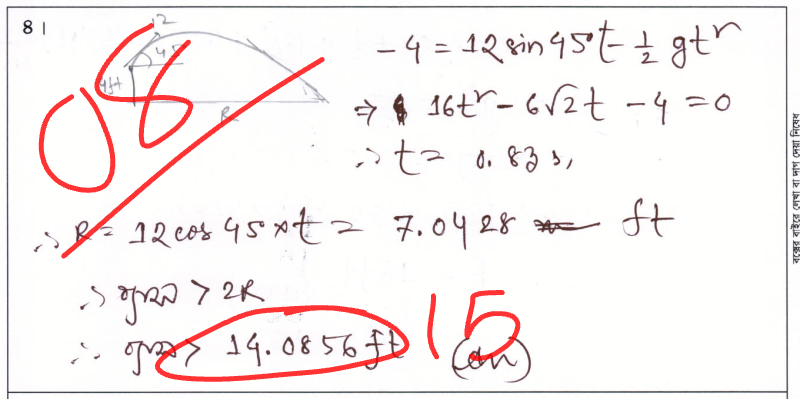 81
12
45
4ft
R
08
-4 = 12 sin 45° t - 1/2 gt²
⇒ 16t² - 6√2 t - 4 = 0
∴ t = 0.83 s,
∴ R = 12 cos 45° × t = 7.0428 ft
∴ > 2R
∴ > 14.0856 ft
15
(Ans)
বক্সের বাইরে লেখা বা দাগ দেয়া নিষেধ